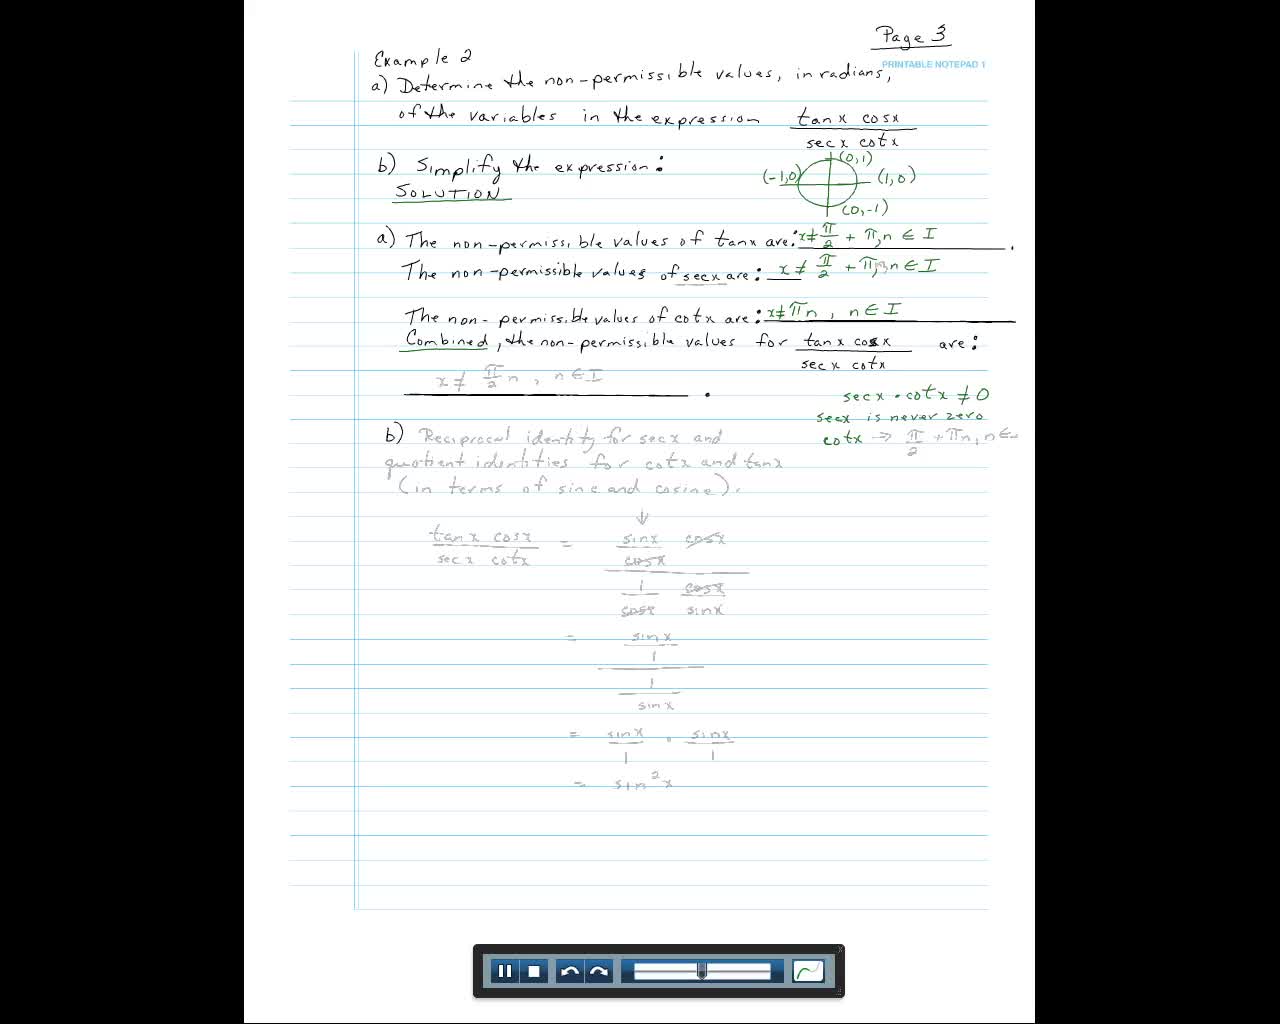 Page 3
PRINTABLE NOTEPAD 1
Example 2
a) Determine the non-permissible values, in radians,
of the variables in the expression tanx cosx / secx cotx
b) Simplify the expression:
SOLUTION
(0,1)
(-1,0) (1,0)
(0,-1)
a) The non-permissible values of tanx are: x≠ π/2 + π,n ∈ I .
The non-permissible values of secx are: x ≠ π/2 + π, n ∈ I
The non-permissible values of cotx are: x≠πn , n ∈ I
Combined, the non-permissible values for tanx cosx / secx cotx are:
x ≠ π/2 n , n ∈ I .
secx · cotx ≠ 0
secx is never zero
cotx ⇒ π/2 + πn, n∈
b) Reciprocal identity for secx and
quotient identities for cotx and tanx
(in terms of sine and cosine).
↓
tanx cosx = sinx cosx
secx cotx cosx
1 cosx
cosx sinx
= sinx
1
1
sinx
= sinx · sinx
1 1
= sin²x